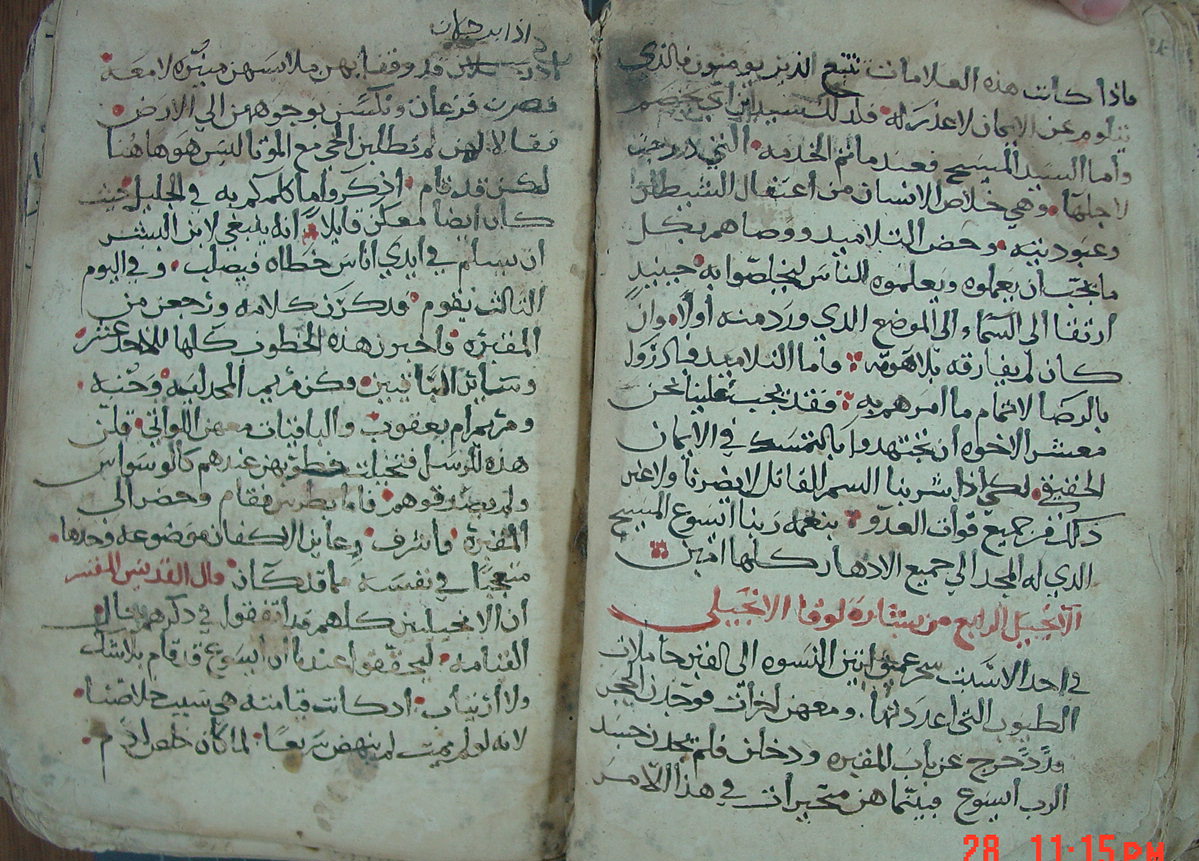 ماذا كانت هذه العلامات تتبع الذين يومنون فالذي
يتلوم عن الايمان لا عذر له فلذلك سيدان
واما السيد المسيح فعند ما تم الخدمه التي
لاجلها وهي خلاص الانسان من اعتقال الشيطان
وعبوديته وحض التلاميد ووصاهم بكل
ما يجب ان يعملوه ويعلموه للناس ليخلصوا به حينيد
ارتقا الى السماء الى الموضع الدي ورد منه أولاً وان
كان لم يفارقه بلاهوته واما التلاميد فبادروا
بالرضا لاتمام ما امرهم به فقد يجب علينا نحن
معشر الاخوه أن نجتهدوا بالتمسك في الايمان
الحقيقي لكي اذا شربنا السم القاتل لا يضرنا ولا غير
ذلك من جميع قوات العدو بنعمه ربنا ايسوع المسيح
الدي له المجد الي جميع الادهار كلها امين
الانجيل الرابع من بشارة لوقا الانجيلي
في احد الاسبت سحر عميق اتين النسوه الى القبر حاملات
الطيوب التي اعددنها ومعهن اخرات فوجدن الحجر
قد دحرج عن باب المقبره ودخلن فلم يجدن جسد
الرب ايسوع فبينما هن متحيرات في هذا الامر
اذا برجلان
قد وقفا بهن بملابسهن منيره لامعه
فصرن فزعان ونكسن بوجوههن الي الارض
فقالا لهن لم تطلبن الحي مع الموتا ليس هو هاهنا
لكن قد قام اذكروا ما كلمكم به في الجليل حيث
كان ايضا معكن قايلاً انه ينبغي لابن البشر
ان يسلم في ايدي اناس خطاه فيصلب وفي اليوم
الثالث يقوم فدكرن كلامه ورجعن من
المقبره واخبرن هذه الخطوب كلها للاحد عشر
وسائر الباقيين وكن مريم المجدليه وحنه
ومريم ام يعقوب والباقيات معهن اللواتي قلن
هذه للرسل فتخيلت خطوبهن عندهم كالوسواس
ولم يصدقوهم فاما بطرس فقام وحضر الى
المقبرة واشرف وعاين الاكفان موضوعه وحدها
متعجباً في نفسه مما قد كان قال القديس المفسر
ان الانجيليين كلهم قد اتفقوا في ذكرهم حال
القيامه ليحققوا عندنا ان ايسوع قد قام بلا شك
ولا ارتياب اد كانت قيامته هي سبب خلاصنا
لانه لو لم يمت لم ينهض سريعا لما كان خلص ادم
28 11:15 PM